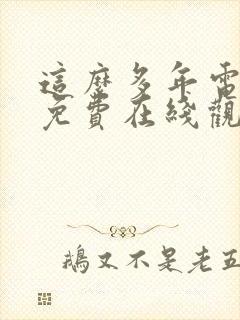 這麼多年電
免費在綫觀
鵝又不是老五